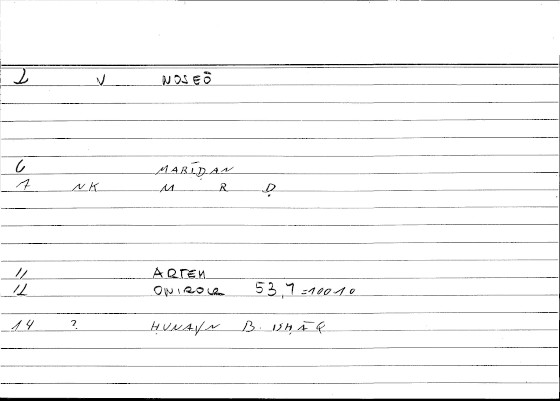 2 V NOSEŌ
6 MARĪḌAN
7 NK M R Ḍ
11 ARTEM
12 ONIROCR 53,7 =10010
14 ? ḤUNAYN B. ISḤĀQ